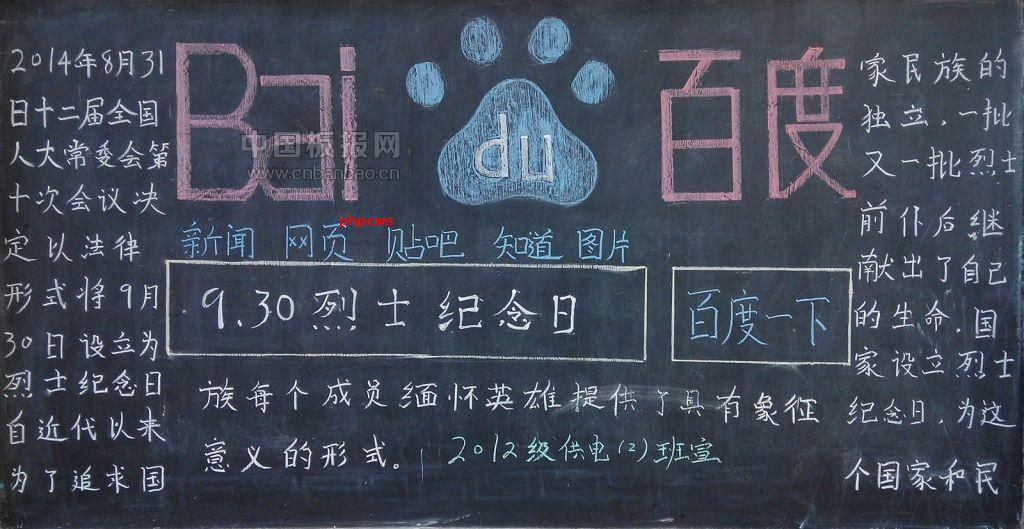 Bai du 百度
中国板报网
www.cnbanbao.cn
phpcms
新闻 网页 贴吧 知道 图片
9.30烈士纪念日
百度一下
2014年8月31
日十二届全国
人大常委会第
十次会议决
定以法律
形式将9月
30日设立为
烈士纪念日
自近代以来
为了追求国
家民族的
独立,一批
又一批烈士
前仆后继
献出了自己
的生命.国
家设立烈士
纪念日,为这
个国家和民
族每个成员缅怀英雄提供了具有象征
意义的形式。
2012级供电(2)班宣